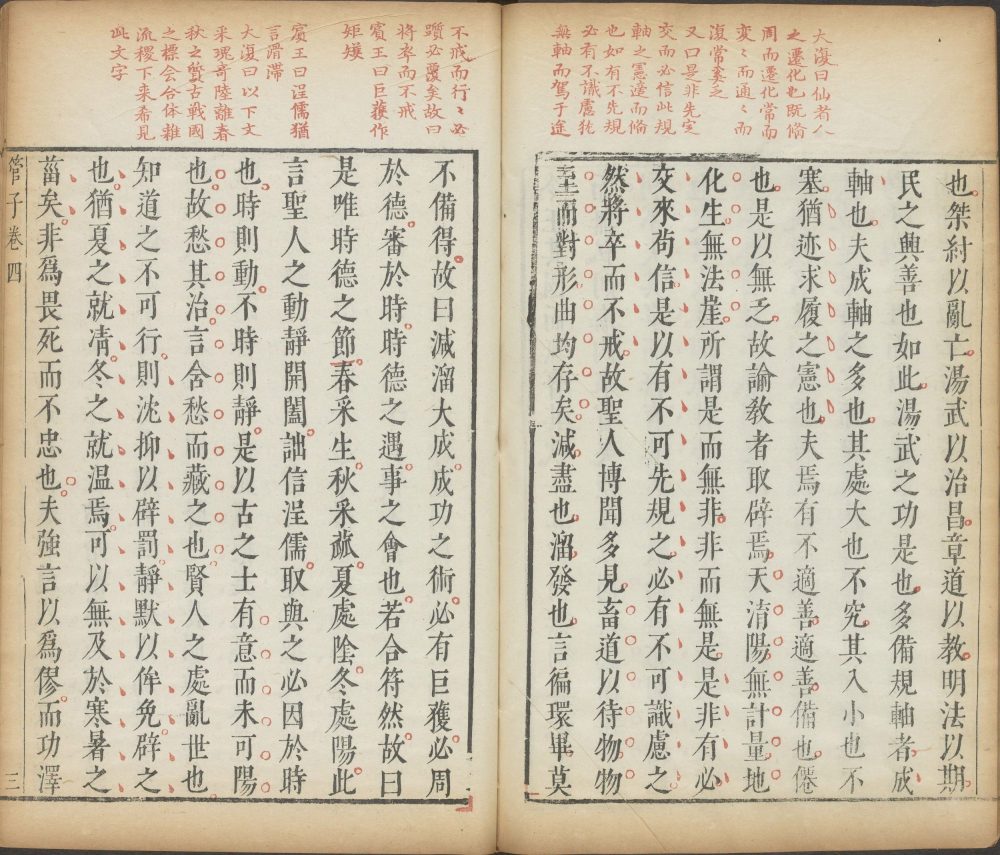 大復曰仙者人
之遷化也既脩
周而遷化常而
變之而通之而
復常奚乏
又曰是非先定
交而必信此規
軸之憲適而脩
也如有不先規
必有不識慮猶
無軸而駕于途
也桀紂以亂亡湯武以治昌章道以教明法以期
民之興善也如此湯武之功是也多備規軸者成
軸也夫成軸之多也其處大也不究其入小也不
塞猶迹求履之憲也夫焉有不適善適善備也僊
也是以無乏故諭教者取辟焉天淯陽無計量地
化生無法崖所謂是而無非非而無是是非有必
交來苟信是以有不可先規之必有不可識慮之
然將卒而不戒故聖人博聞多見畜道以待物物
至而對形曲均存矣減盡也溜發也言徧環畢莫
不戒而行之必
躓必覆矣故曰
將卒而不戒
賓王曰巨蒦作
矩矱
賓王曰浧儒猶
言滑滯
大復曰以下文
采瑰奇陸離春
秋之贄古戰國
之標会合体雜
流稷下来希見
此文字
不備得故曰減溜大成成功之術必有巨獲必周
於德審於時時德之遇事之會也若合符然故曰
是唯時德之節春采生秋采蓏夏處陰冬處陽此
言聖人之動靜開闔詘信浧儒取與之必因於時
也時則動不時則靜是以古之士有意而未可陽
也故愁其治言含愁而藏之也賢人之處亂世也
知道之不可行則沈抑以辟罰靜默以侔免辟之
也猶夏之就凊冬之就温焉可以無及於寒暑之
菑矣非爲畏死而不忠也夫強言以爲僇而功澤
管子卷四
三